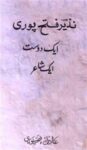 نذیر فتح پوری
ایک دوست
ایک شاعر